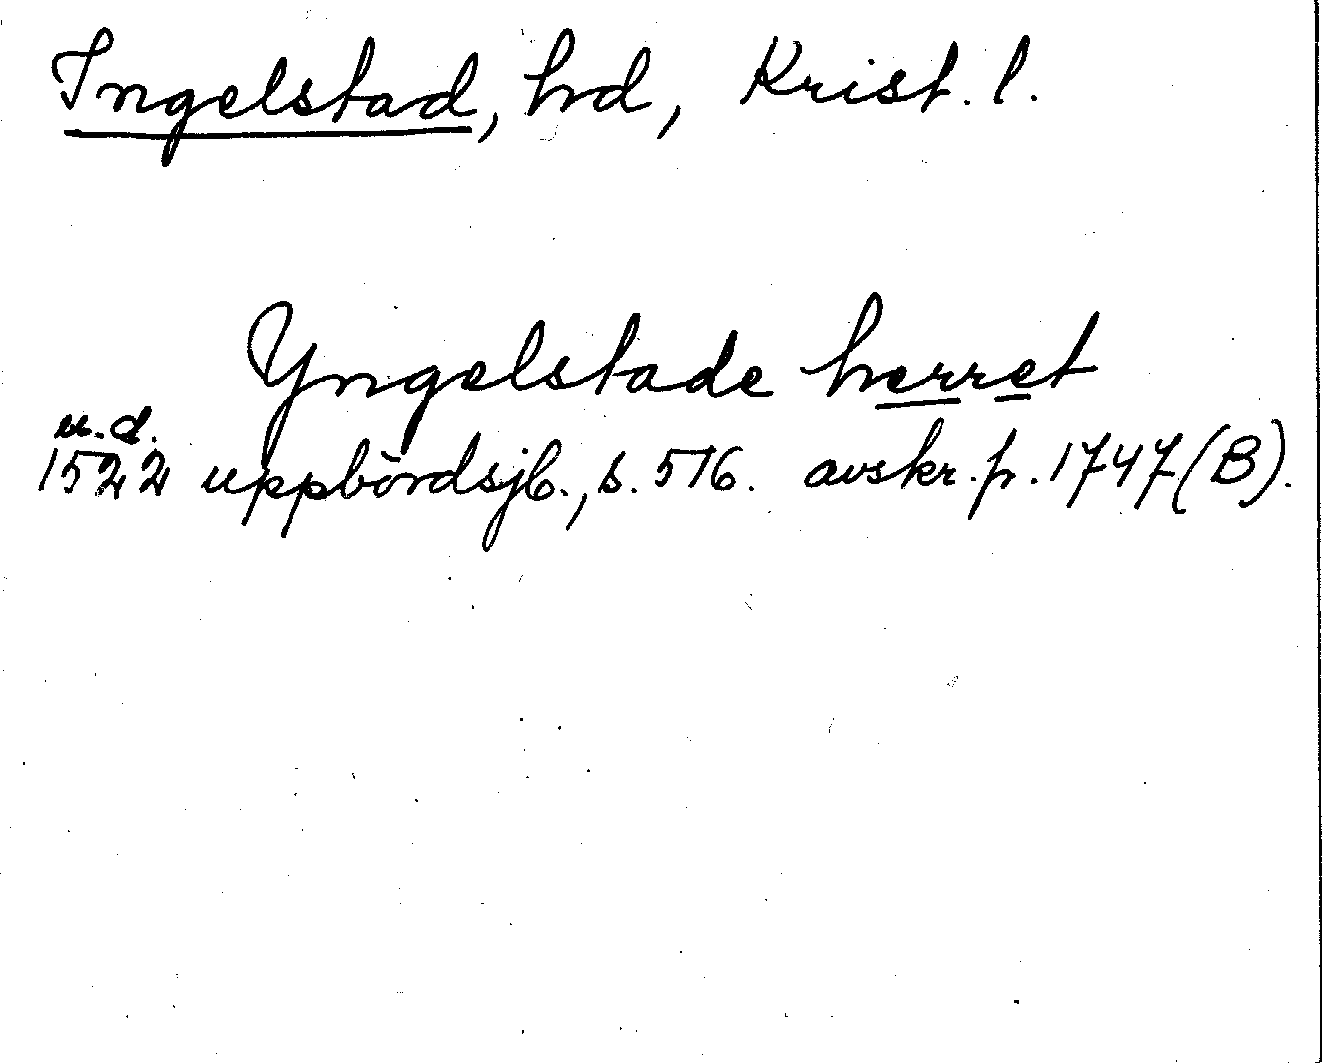 Ingelstad, hd, Krist. l.
Yngelstade herret
u.d.
1522 uppbördsjb., s. 516. avskr. p. 1747(B).